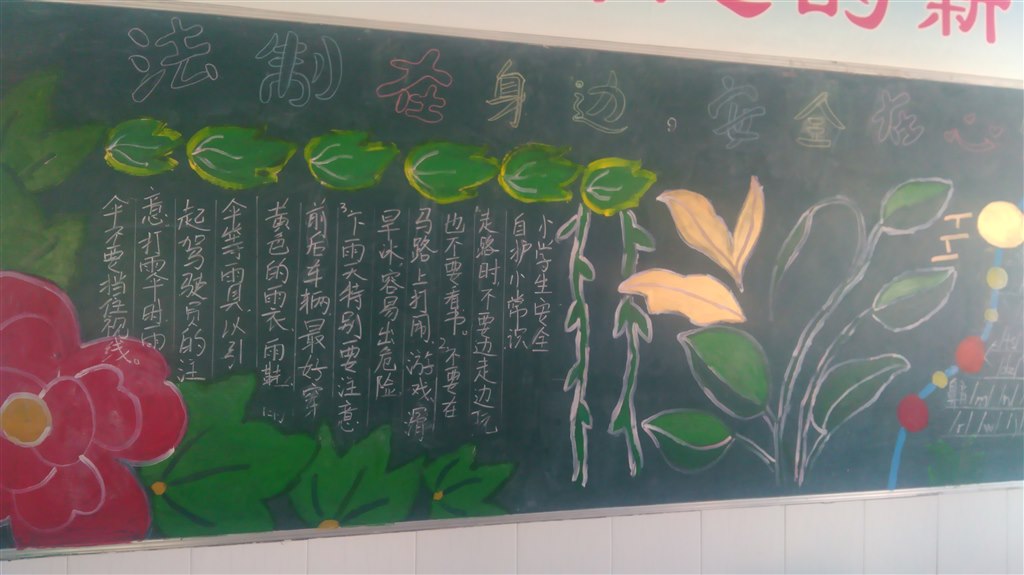 的新
法制在身边，安全在心
小学生安全
自护小常识
走路时，不要边走边玩
也不要看书。2不要在
马路上打闹、游戏滑
旱冰容易出危险
3下雨天特别要注意
前后车辆最好穿
黄色的雨衣、雨鞋
伞等雨具，以引
起驾驶员的注
意打雨伞时雨
伞不要挡住视线。